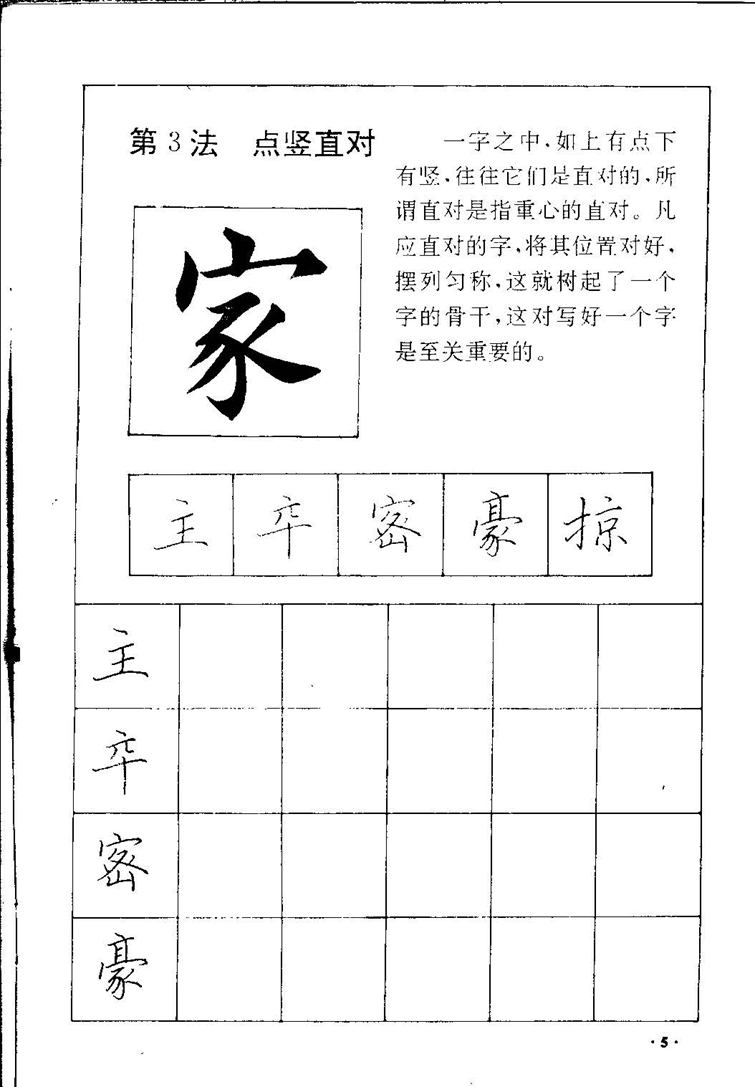 第3法 点竖直对
一字之中，如上有点下
有竖，往往它们是直对的，所
谓直对是指重心的直对。凡
应直对的字，将其位置对好，
摆列匀称，这就树起了一个
字的骨干，这对写好一个字
是至关重要的。
家
主 卒 密 豪 掠
主
卒
密
豪
·5·